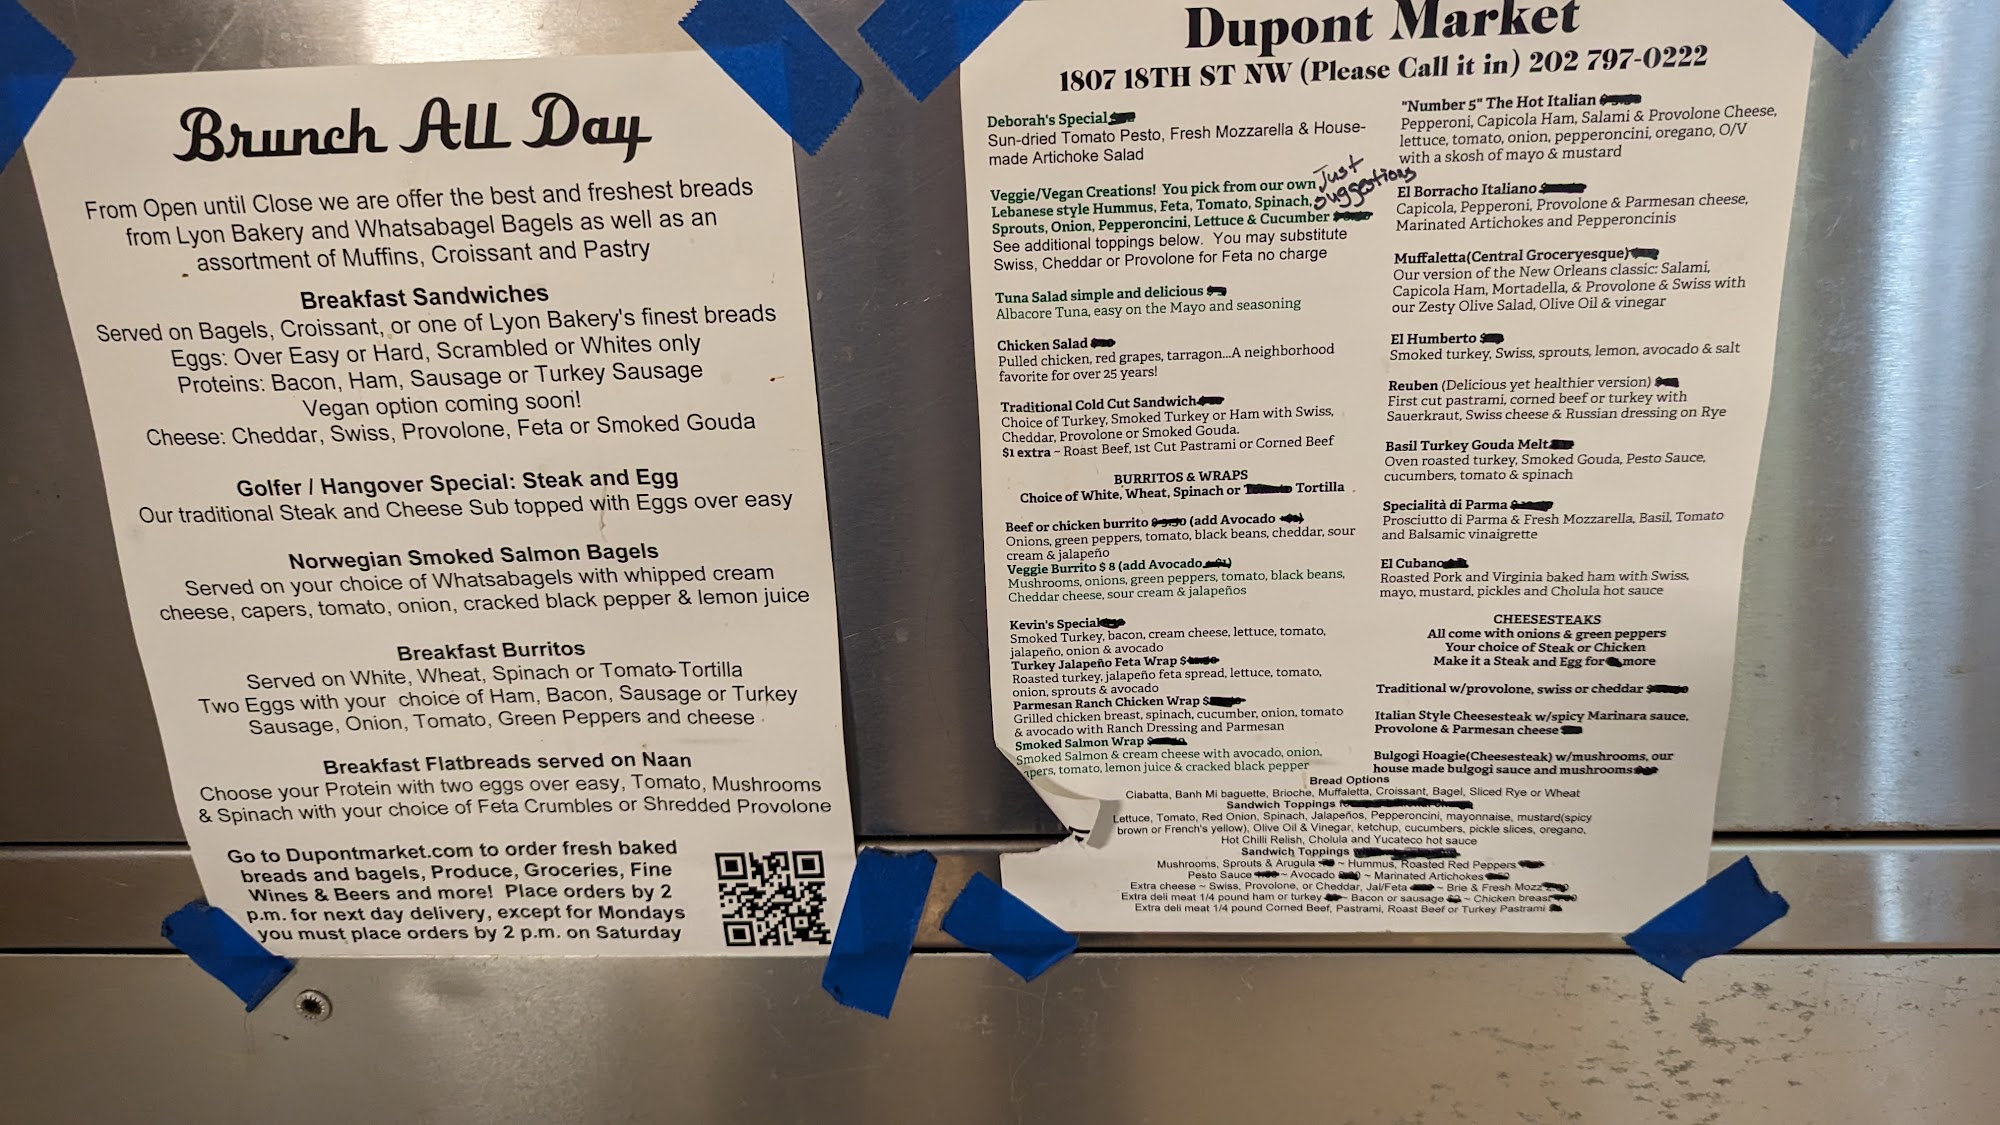 Brunch All Day
From Open until Close we are offer the best and freshest breads
from Lyon Bakery and Whatsabagel Bagels as well as an
assortment of Muffins, Croissant and Pastry
Breakfast Sandwiches
Served on Bagels, Croissant, or one of Lyon Bakery's finest breads
Eggs: Over Easy or Hard, Scrambled or Whites only
Proteins: Bacon, Ham, Sausage or Turkey Sausage
Vegan option coming soon!
Cheese: Cheddar, Swiss, Provolone, Feta or Smoked Gouda
Golfer / Hangover Special: Steak and Egg
Our traditional Steak and Cheese Sub topped with Eggs over easy
Norwegian Smoked Salmon Bagels
Served on your choice of Whatsabagels with whipped cream
cheese, capers, tomato, onion, cracked black pepper & lemon juice
Breakfast Burritos
Served on White, Wheat, Spinach or Tomato Tortilla
Two Eggs with your choice of Ham, Bacon, Sausage or Turkey
Sausage, Onion, Tomato, Green Peppers and cheese
Breakfast Flatbreads served on Naan
Choose your Protein with two eggs over easy, Tomato, Mushrooms
& Spinach with your choice of Feta Crumbles or Shredded Provolone
Go to Dupontmarket.com to order fresh baked
breads and bagels, Produce, Groceries, Fine
Wines & Beers and more! Place orders by 2
p.m. for next day delivery, except for Mondays
you must place orders by 2 p.m. on Saturday
Dupont Market
1807 18TH ST NW (Please Call it in) 202 797-0222
Deborah's Special
Sun-dried Tomato Pesto, Fresh Mozzarella & House-
made Artichoke Salad
Just
suggestions
Veggie/Vegan Creations! You pick from our own
Lebanese style Hummus, Feta, Tomato, Spinach,
Sprouts, Onion, Pepperoncini, Lettuce & Cucumber
See additional toppings below. You may substitute
Swiss, Cheddar or Provolone for Feta no charge
Tuna Salad simple and delicious
Albacore Tuna, easy on the Mayo and seasoning
Chicken Salad
Pulled chicken, red grapes, tarragon...A neighborhood
favorite for over 25 years!
Traditional Cold Cut Sandwich
Choice of Turkey, Smoked Turkey or Ham with Swiss,
Cheddar, Provolone or Smoked Gouda.
$1 extra ~ Roast Beef, 1st Cut Pastrami or Corned Beef
BURRITOS & WRAPS
Choice of White, Wheat, Spinach or Tortilla
Beef or chicken burrito (add Avocado
Onions, green peppers, tomato, black beans, cheddar, sour
cream & jalapeño
Veggie Burrito $ 8 (add Avocado
Mushrooms, onions, green peppers, tomato, black beans,
Cheddar cheese, sour cream & jalapeños
Kevin's Special
Smoked Turkey, bacon, cream cheese, lettuce, tomato,
jalapeño, onion & avocado
Turkey Jalapeño Feta Wrap $
Roasted turkey, jalapeño feta spread, lettuce, tomato,
onion, sprouts & avocado
Parmesan Ranch Chicken Wrap $
Grilled chicken breast, spinach, cucumber, onion, tomato
& avocado with Ranch Dressing and Parmesan
Smoked Salmon Wrap
Smoked Salmon & cream cheese with avocado, onion,
apers, tomato, lemon juice & cracked black pepper
"Number 5" The Hot Italian
Pepperoni, Capicola Ham, Salami & Provolone Cheese,
lettuce, tomato, onion, pepperoncini, oregano, O/V
with a skosh of mayo & mustard
El Borracho Italiano
Capicola, Pepperoni, Provolone & Parmesan cheese,
Marinated Artichokes and Pepperoncinis
Muffaletta(Central Groceryesque)
Our version of the New Orleans classic: Salami,
Capicola Ham, Mortadella, & Provolone & Swiss with
our Zesty Olive Salad, Olive Oil & vinegar
El Humberto
Smoked turkey, Swiss, sprouts, lemon, avocado & salt
Reuben (Delicious yet healthier version)
First cut pastrami, corned beef or turkey with
Sauerkraut, Swiss cheese & Russian dressing on Rye
Basil Turkey Gouda Melt
Oven roasted turkey, Smoked Gouda, Pesto Sauce,
cucumbers, tomato & spinach
Specialità di Parma
Prosciutto di Parma & Fresh Mozzarella, Basil, Tomato
and Balsamic vinaigrette
El Cubano
Roasted Pork and Virginia baked ham with Swiss,
mayo, mustard, pickles and Cholula hot sauce
CHEESESTEAKS
All come with onions & green peppers
Your choice of Steak or Chicken
Make it a Steak and Egg for more
Traditional w/provolone, swiss or cheddar
Italian Style Cheesesteak w/spicy Marinara sauce.
Provolone & Parmesan cheese
Bulgogi Hoagie(Cheesesteak) w/mushrooms, our
house made bulgogi sauce and mushrooms
Bread Options
Ciabatta, Banh Mi baguette, Brioche, Muffaletta, Croissant, Bagel, Sliced Rye or Wheat
Sandwich Toppings
Lettuce, Tomato, Red Onion, Spinach, Jalapeños, Pepperoncini, mayonnaise, mustard(spicy
brown or French's yellow), Olive Oil & Vinegar, ketchup, cucumbers, pickle slices, oregano,
Hot Chilli Relish, Cholula and Yucateco hot sauce
Sandwich Toppings
Mushrooms, Sprouts & Arugula ~ Hummus, Roasted Red Peppers
Pesto Sauce ~ Avocado ~ Marinated Artichokes
Extra cheese ~ Swiss, Provolone, or Cheddar, Jal/Feta ~ Brie & Fresh Mozz
Extra deli meat 1/4 pound ham or turkey ~ Bacon or sausage ~ Chicken breast
Extra deli meat 1/4 pound Corned Beef, Pastrami, Roast Beef or Turkey Pastrami